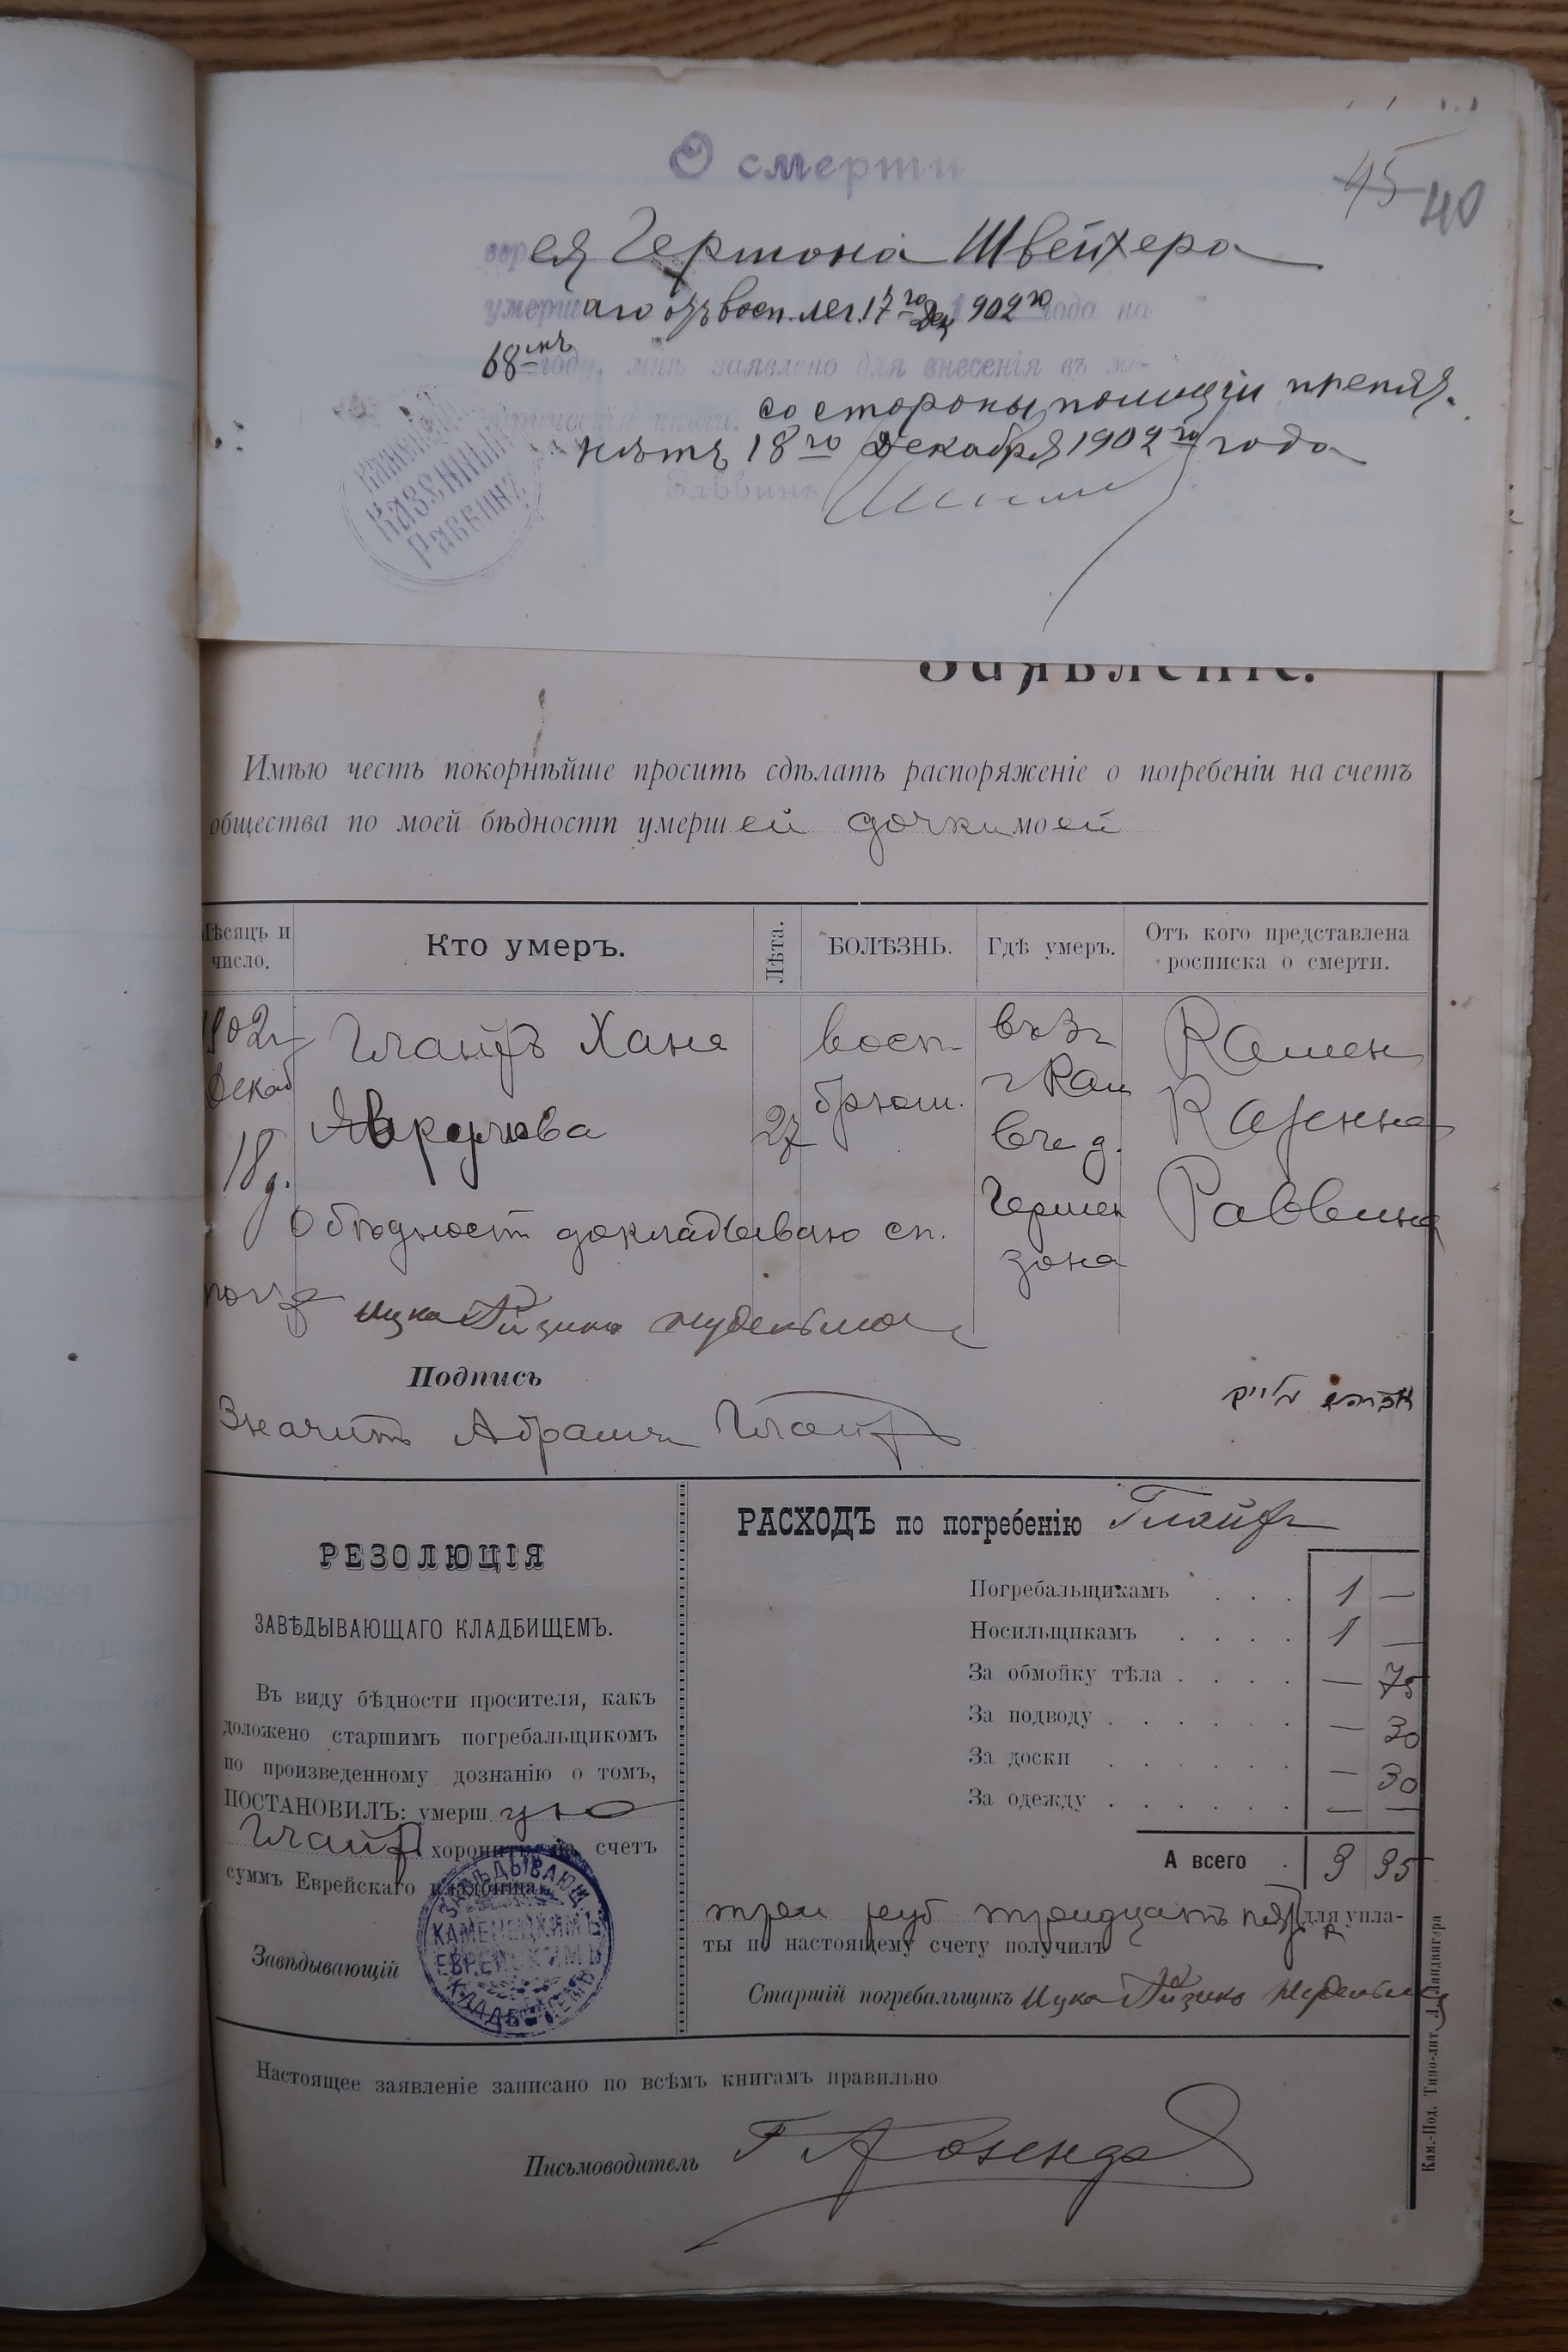 О смерти
45 40
еврея Гершона Швейхера
умершаго отъ восп. лег. 17го Дек 1902го года на
68мъ году, мнѣ заявлено для внесенія въ ме-
трическія книги. со стороны полиціи препят.
нѣтъ 18го Декабря 1902го года
Раввинъ
Казенный
Раввинъ
Заявленіе.
Имѣю честь покорнѣйше просить сдѣлать распоряженіе о погребеніи на счетъ
общества по моей бѣдности умершей дочки моей
Мѣсяцъ и число.
Кто умеръ.
Лѣта.
БОЛѢЗНЬ.
Гдѣ умеръ.
Отъ кого представлена росписка о смерти.
1902г
Декаб
18 д.
Глайзъ Хана
27
восп
брюш.
г Кам
в д.
Герше
зона
Камен
Казенна
Раввина
О бѣдност докладываю ст.
погр Ицко Айзико
Подпись
Значитъ Абрамъ
РЕЗОЛЮЦІЯ
ЗАВѢДЫВАЮЩАГО КЛАДБИЩЕМЪ.
Въ виду бѣдности просителя, какъ
доложено старшимъ погребальщикомъ
по произведенному дознанію о томъ,
ПОСТАНОВИЛЪ: умершую
хоронить на счетъ
суммъ Еврейскаго кладбища.
Завѣдывающій
ЗАВѢДЫВАЮЩ.
КАМЕНЕЦКИМЪ
ЕВРЕЙСКИМЪ
КЛАДБИЩЕМЪ
РАСХОДЪ по погребенію
Погребальщикамъ . . . 1 —
Носильщикамъ . . . . 1 —
За обмойку тѣла . . . . — 75
За подводу . . . . . . — 30
За доски . . . . . . — 30
За одежду . . . . . . — —
А всего . 3 35
три руб тридцать пять к для упла-
ты по настоящему счету получилъ
Старшій погребальщикъ Ицко Айзико
Настоящее заявленіе записано по всѣмъ книгамъ правильно
Письмоводитель
Кам.-Под. Типо-лит. Л. Ландвигера